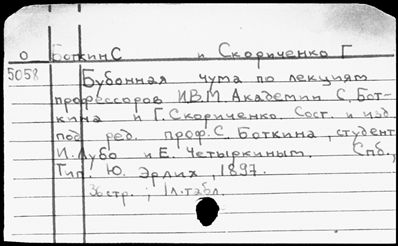 О Боткин С и Скориченко Г
5058 Бубонная чума по лекциям
профессоров И.В.М. Академии С. Бот-
кина и Г. Скориченко. Сост. и изд
под ред. проф. С. Боткина, студент
И. Лубо и Е. Четыркиным. Спб.,
Тип. Ю. Эрлих, 1897.
36 стр., 1 л. табл.